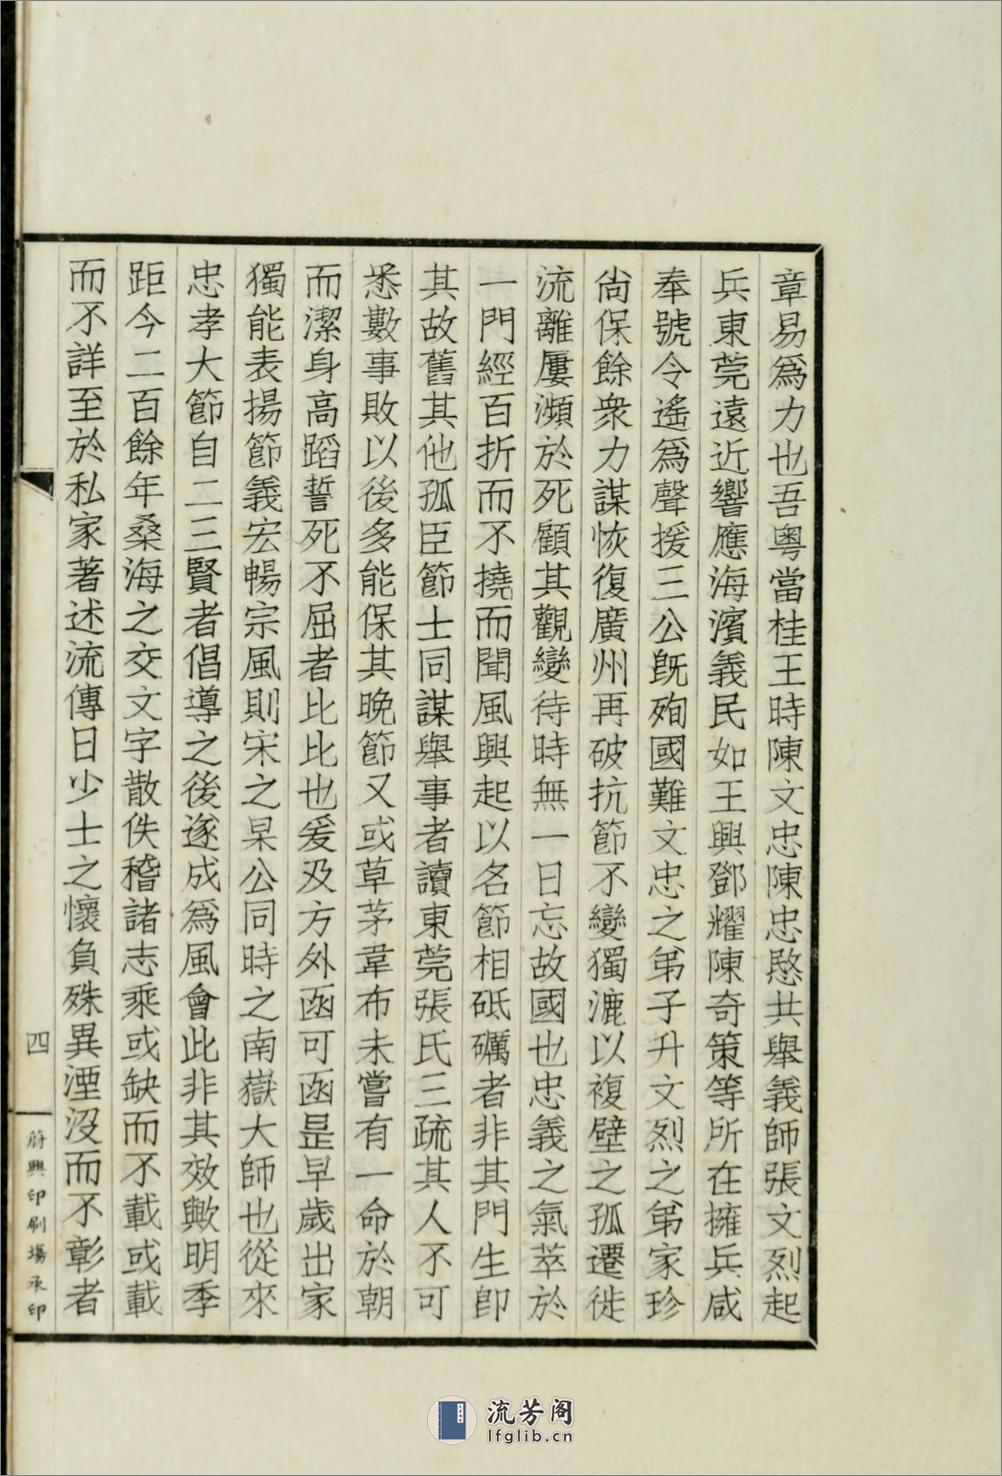 章易爲力也吾粵當桂王時陳文忠陳忠愍共舉義師張文烈起
兵東莞遠近響應海濱義民如王興鄧耀陳奇策等所在擁兵咸
奉號令遙爲聲援三公既殉國難文忠之弟子升文烈之弟家珍
尙保餘衆力謀恢復廣州再破抗節不變獨漉以複壁之孤遷徙
流離屢瀕於死顧其觀變待時無一日忘故國也忠義之氣萃於
一門經百折而不撓而聞風興起以名節相砥礪者非其門生卽
其故舊其他孤臣節士同謀舉事者讀東莞張氏三疏其人不可
悉數事敗以後多能保其晚節又或草茅韋布未嘗有一命於朝
而潔身高蹈誓死不屈者比比也爰及方外函可函昰早歲出家
獨能表揚節義宏暢宗風則宋之杲公同時之南嶽大師也從來
忠孝大節自二三賢者倡導之後遂成爲風會此非其效歟明季
距今二百餘年桑海之交文字散佚稽諸志乘或缺而不載或載
而不詳至於私家著述流傳日少士之懷負殊異湮沒而不彰者
四
蔚興印刷場承印
流芳阁
lfglib.cn